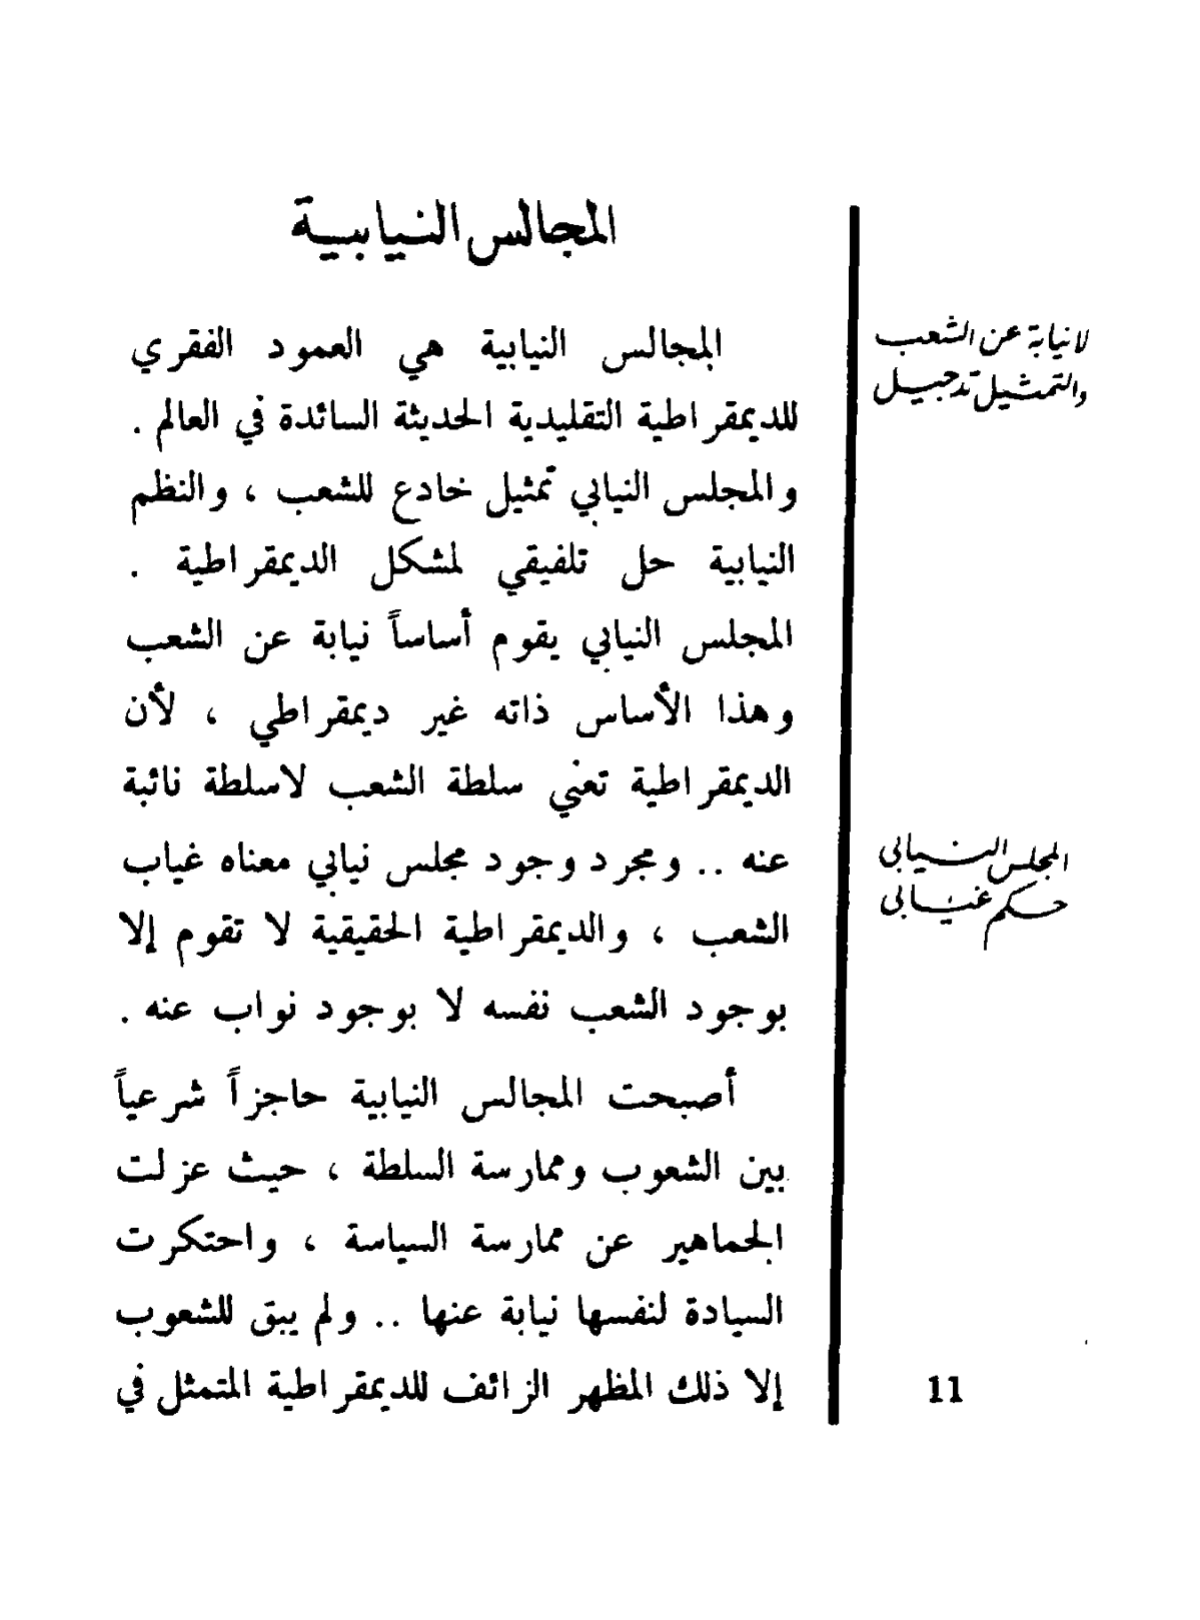 المجالس النيابية
لا نيابة عن الشعب
والتمثيل تدجيل
المجالس النيابية هي العمود الفقري
للديمقراطية التقليدية الحديثة السائدة في العالم .
والمجلس النيابي تمثيل خادع للشعب ، والنظم
النيابية حل تلفيقي لمشكل الديمقراطية .
المجلس النيابي يقوم أساساً نيابة عن الشعب
وهذا الأساس ذاته غير ديمقراطي ، لأن
الديمقراطية تعني سلطة الشعب لاسلطة نائبة
المجلس النيابي
حكم غيابي
عنه .. ومجرد وجود مجلس نيابي معناه غياب
الشعب ، والديمقراطية الحقيقية لا تقوم إلا
بوجود الشعب نفسه لا بوجود نواب عنه .
أصبحت المجالس النيابية حاجزاً شرعياً
بين الشعوب وممارسة السلطة ، حيث عزلت
الجماهير عن ممارسة السياسة ، واحتكرت
السيادة لنفسها نيابة عنها .. ولم يبق للشعوب
إلا ذلك المظهر الزائف للديمقراطية المتمثل في
11